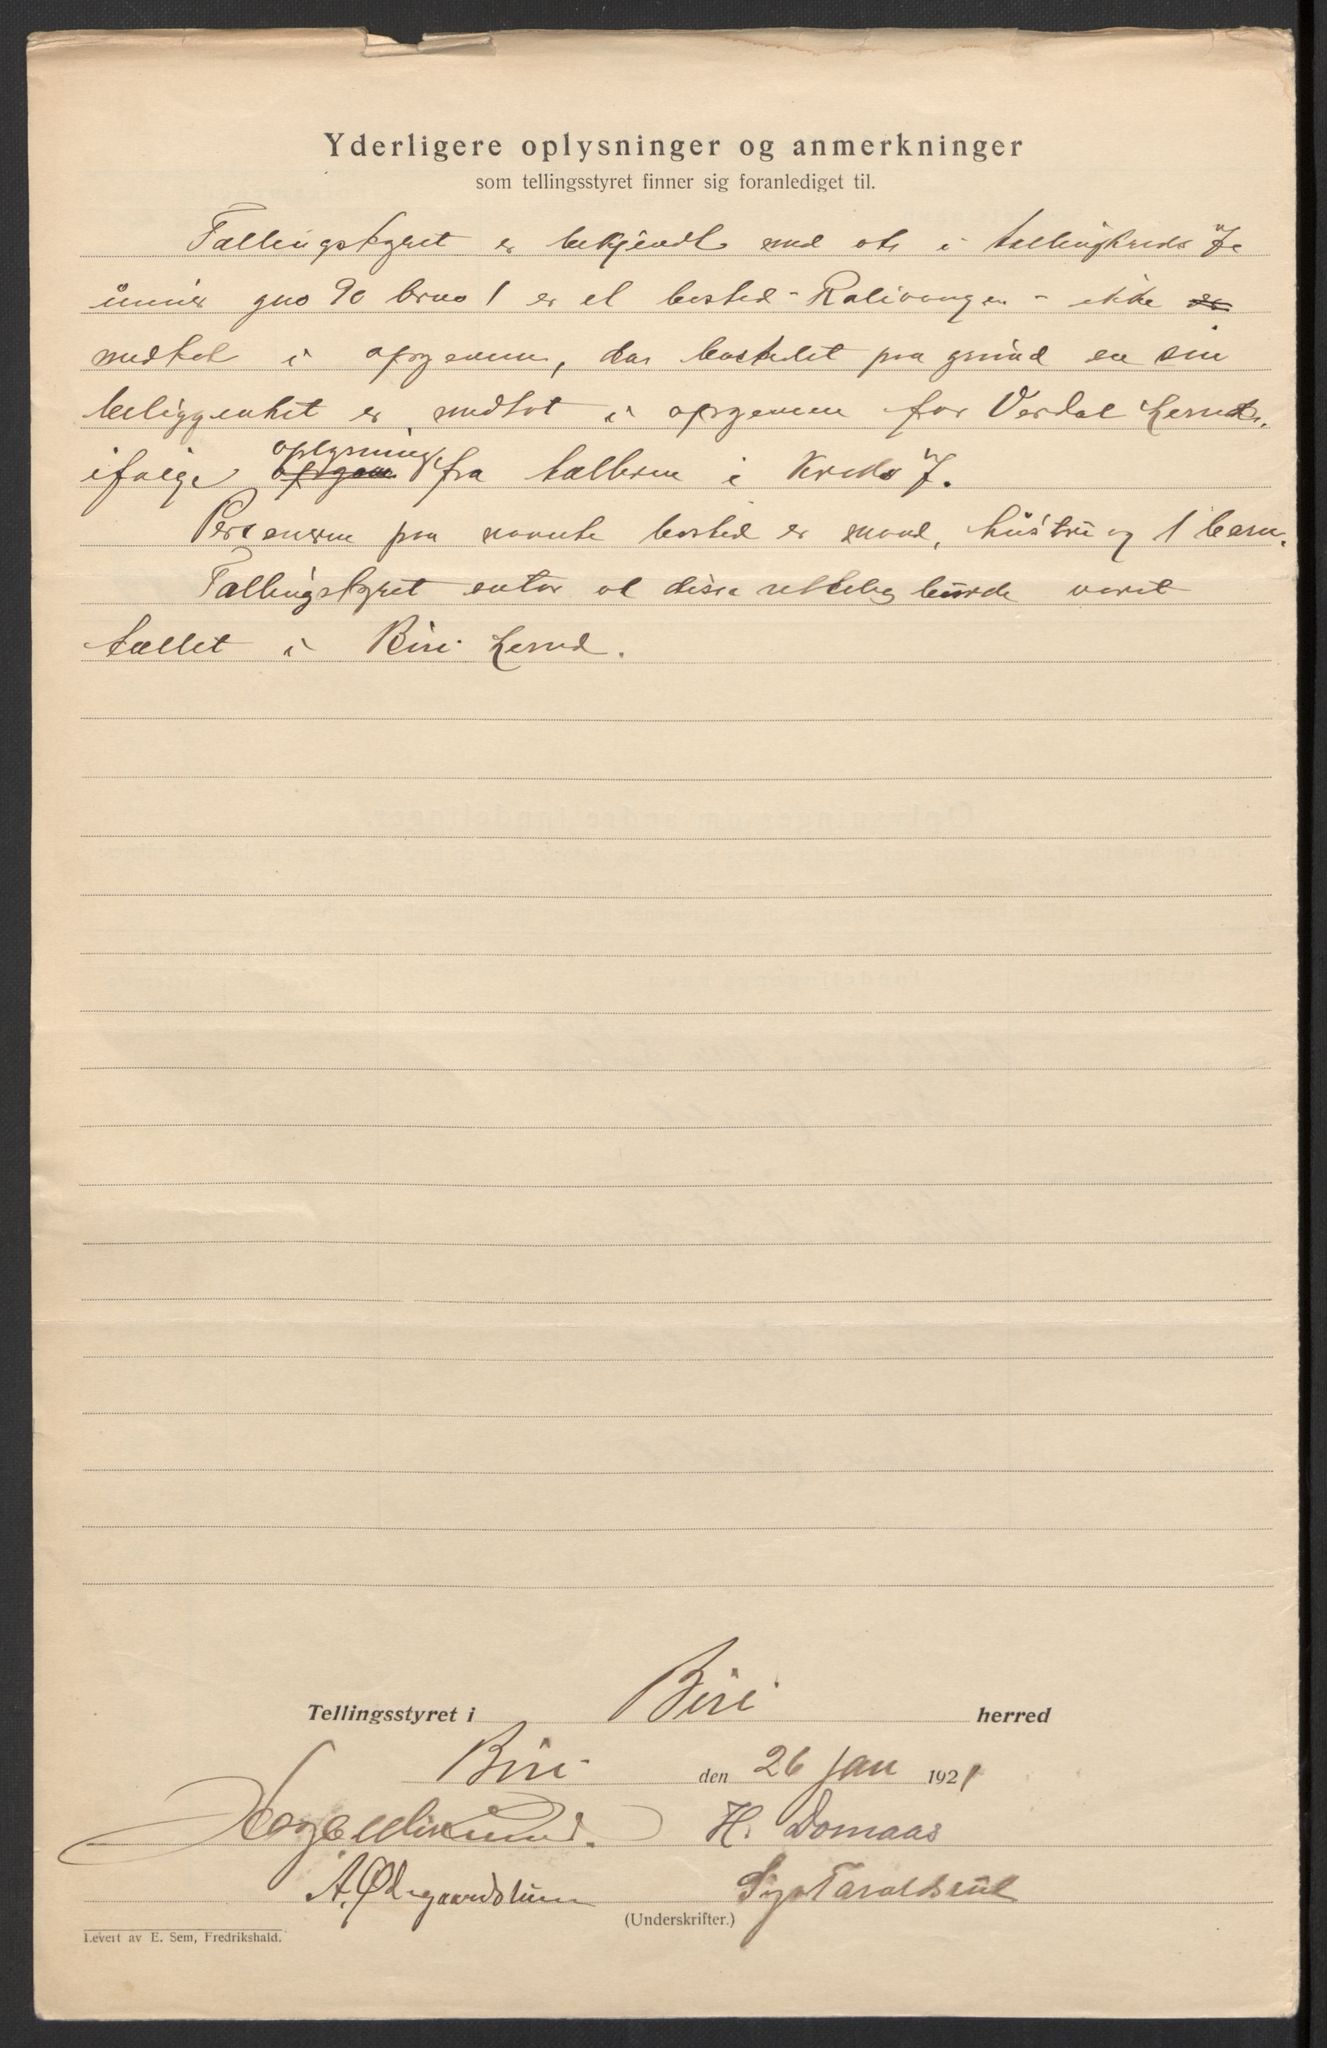 Yderligere oplysninger og anmerkninger
som tellingsstyret finner sig foranlediget til.
Tællingstyret er bekjendt med at i tællingkreds 7
under gno 90 brno 1 er et bosted - - ikke er
medtat i opgavene, da bostedet paa grund av sin
beliggenhet er medtat i opgaven for Vardal herred,
ifølge opgave oplysning fra tælleren i kreds 7.
Personerne paa nævnte bosted er mand, hustru og 1 barn.
Tællingstyret antar at disse rettelig burde været
tællet i Biri herred.
Tellingsstyret i Biri herred
Biri den 26 jan 1921
H. Domaas
A. Ødegaardstuen
(Underskrifter.)
Levert av E. Sem, Fredrikshald.